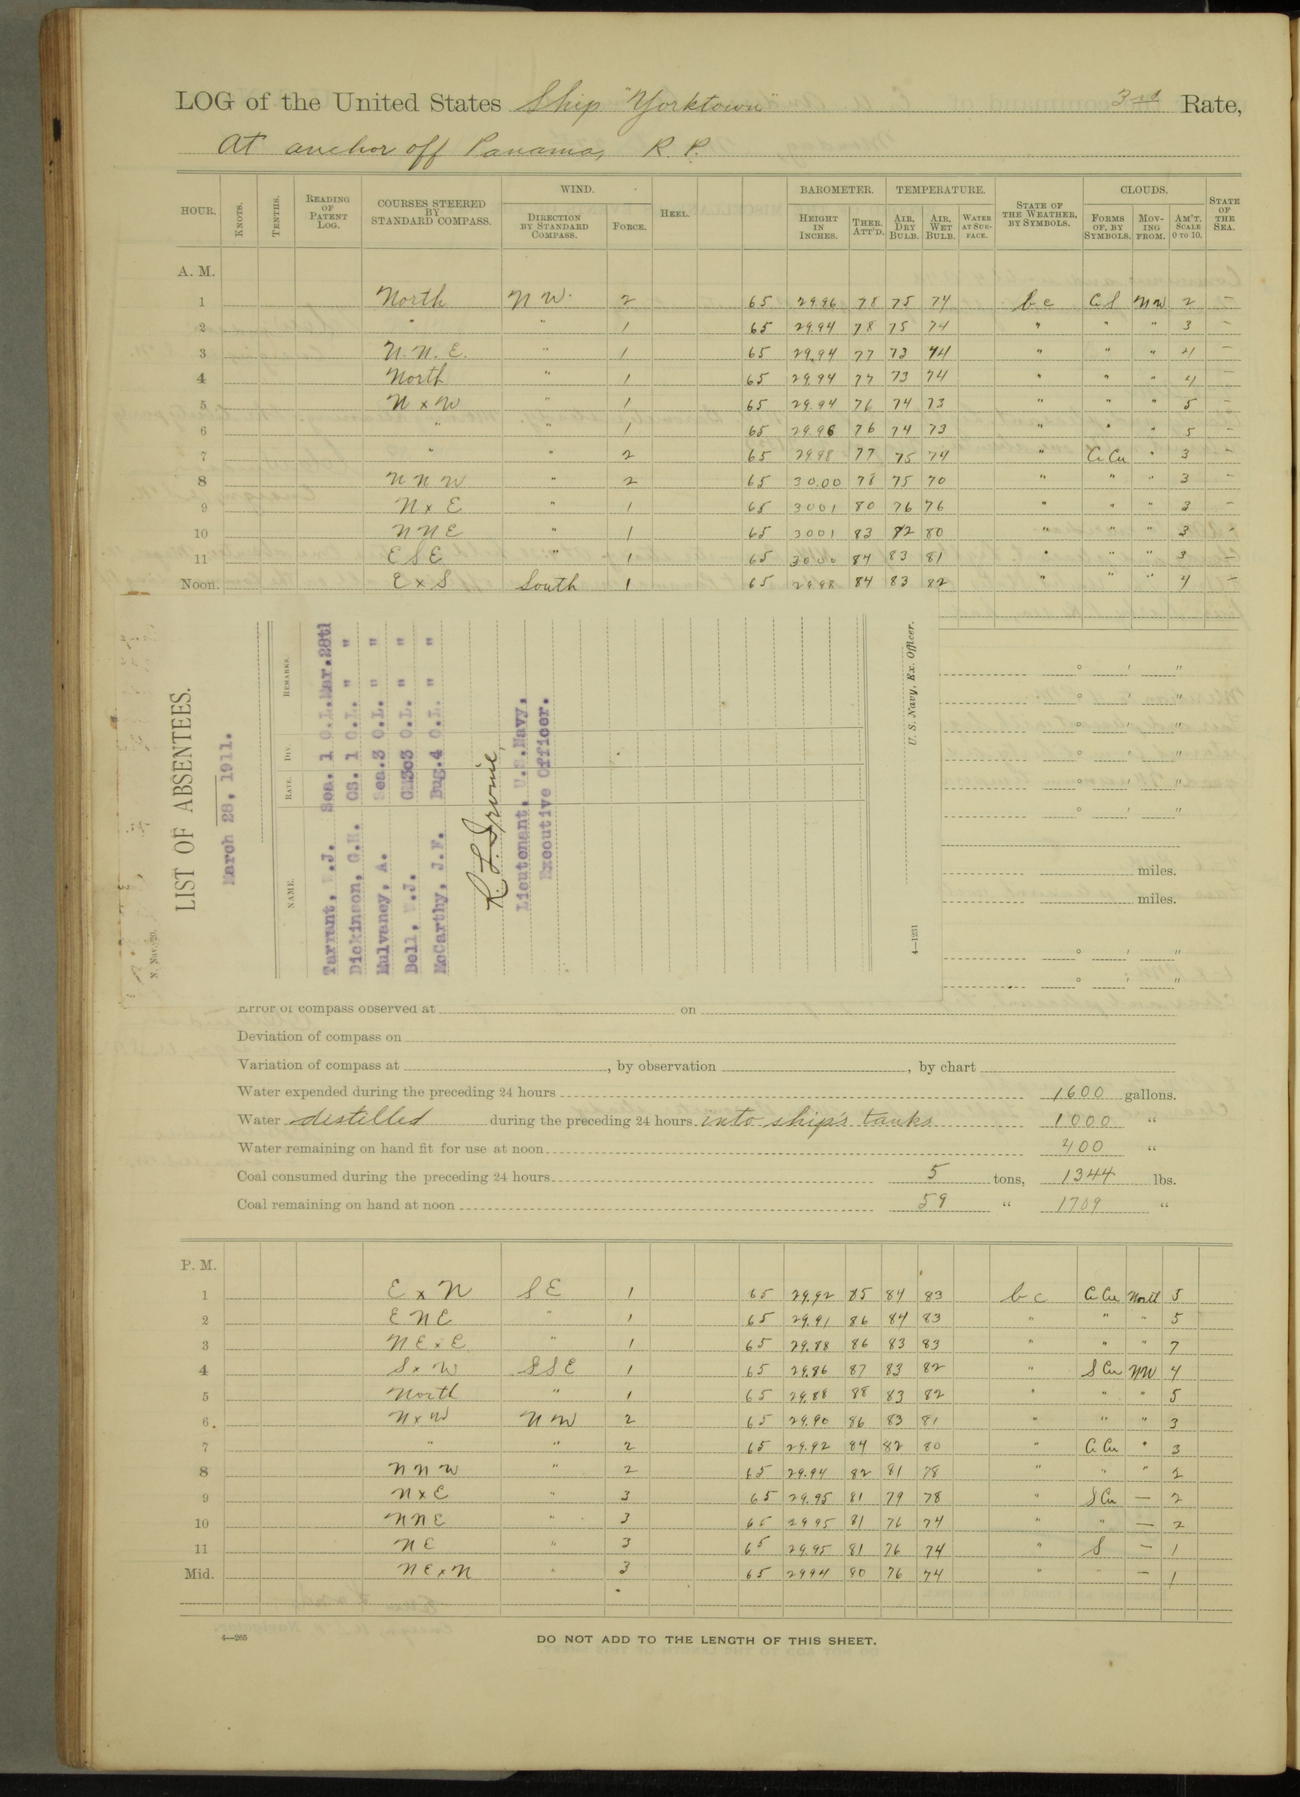 LOG of the United States Ship "Yorktown" 3rd Rate,
At anchor off Panama, R. P.
HOUR. KNOTS. TENTHS. READING OF PATENT LOG. COURSES STEERED BY STANDARD COMPASS. WIND. DIRECTION BY STANDARD COMPASS. FORCE. HEEL. BAROMETER. HEIGHT IN INCHES. THER. ATT'D. TEMPERATURE. AIR, DRY BULB. AIR, WET BULB. WATER AT SURFACE. STATE OF THE WEATHER, BY SYMBOLS. CLOUDS. FORMS OF, BY SYMBOLS. MOVING FROM. AM'T. SCALE 0 TO 10. STATE OF THE SEA.
A. M.
1 North NW. 2 65 29.96 78 75 74 bc CS NW 2 –
2 " " 1 65 29.94 78 75 74 " " " 3 –
3 N.N.E. " 1 65 29.94 77 73 74 " " " 4 –
4 North " 1 65 29.94 77 73 74 " " " 4 –
5 N x W " 1 65 29.94 76 74 73 " " " 5 –
6 " " 1 65 29.96 76 74 73 " " " 5 –
7 " " 2 65 29.98 77 75 74 " Ci Cu " 3 –
8 NNW " 2 65 30.00 78 75 70 " " " 3 –
9 N x E " 1 65 30.01 80 76 76 " " " 3 –
10 NNE " 1 65 30.01 83 82 80 " " " 3 –
11 ESE " 1 65 30.00 84 83 81 " " " 3 –
Noon. E x S South 1 65 29.98 84 83 82 " " " 4 –
LIST OF ABSENTEES.
March 28, 1911.
NAME. RATE. DIV. REMARKS.
Tarrant, .J. Sea. 1 O.L. Mar. 28th
Dickinson, G.H. OS. 1 O.L. " "
Mulvaney, A. Sea. 3 O.L. " "
Bell, .J. GM3c 3 O.L. " "
McCarthy, J.F. Bug. 4 O.L. " "
R L Irvine,
Lieutenant, U.S.Navy,
Executive Officer.
U. S. Navy, Ex. Officer.
4—1231
N. Nav. 20.
° ' "
° ' "
° ' "
° ' "
° ' "
° ' "
miles.
miles.
° ' "
° ' "
Error of compass observed at on
Deviation of compass on
Variation of compass at , by observation , by chart
Water expended during the preceding 24 hours 1600 gallons.
Water distilled during the preceding 24 hours into ship's tanks 1000 "
Water remaining on hand fit for use at noon 400 "
Coal consumed during the preceding 24 hours 5 tons, 1344 lbs.
Coal remaining on hand at noon 59 " 1709 "
P. M.
1 E x N SE 1 65 29.92 85 84 83 bc Ci Cu North 5
2 ENE " 1 65 29.91 86 84 83 " " " 5
3 NE x E " 1 65 29.88 86 83 83 " " " 7
4 S x W SSE 1 65 29.86 87 83 82 " S Cu NW 4
5 North " 1 65 29.88 88 83 82 " " " 5
6 N x W NW 2 65 29.90 86 83 81 " " " 3
7 " " 2 65 29.92 84 82 80 " Ci Cu " 3
8 NNW " 2 65 29.94 82 81 78 " " " 2
9 N x E " 3 65 29.95 81 79 78 " S Cu — 2
10 NNE " 3 65 29.95 81 76 74 " " — 2
11 NE " 3 65 29.95 81 76 74 " S — 1
Mid. NE x N " 3 65 29.94 80 76 74 " " — 1
4—265
DO NOT ADD TO THE LENGTH OF THIS SHEET.